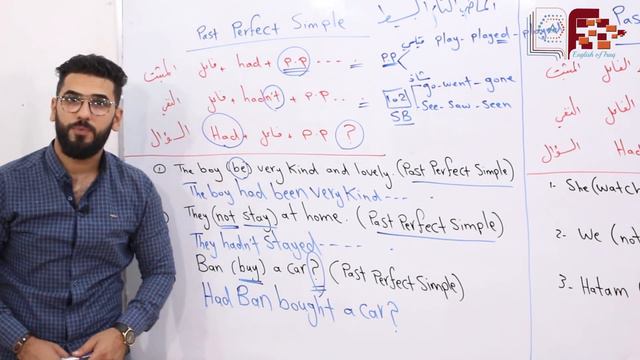 Past Perfect Simple
الماضي التام البسيط
المثبت فاعل + had + p.p ...
النفي فاعل + hadn't + p.p. ..
السؤال Had + فاعل + p.p ?
PP
play - played - played
شاذ
go - went - gone
see - saw - seen
102
SB
① The boy (be) very kind and lovely. (Past Perfect Simple)
The boy had been very kind --- .
They (not stay) at home. (Past Perfect Simple)
They hadn't stayed ---- .
Ban (buy) a car? (Past Perfect Simple)
Had Ban bought a car?
Pas
المثبت الفاعل
النفي الفاعل
السؤال Had
1- She (watch
2- We (not
3- Hatam (
English of Iraq